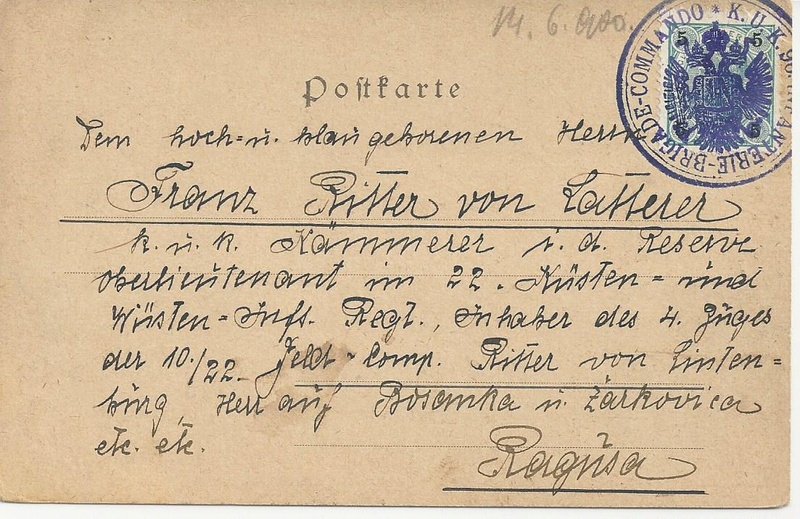 14. 6. 900.
K. U. K. 90. INFANTERIE-BRIGADE-COMMANDO *
5 5
5 5
Postkarte
Dem hoch- u. blaugeborenen Herrn
Franz Ritter von Latterer
k. u. k. Kämmerer i. d. Reserve
Oberlieutenant im 22. Küsten- und
Wüsten-Inft. Regt., Inhaber des 4. Zuges
der 10./22. Feld-Comp. Ritter von Linten=
burg, Herr auf Bosanka u. Žarkovica
etc. etc.
Ragusa